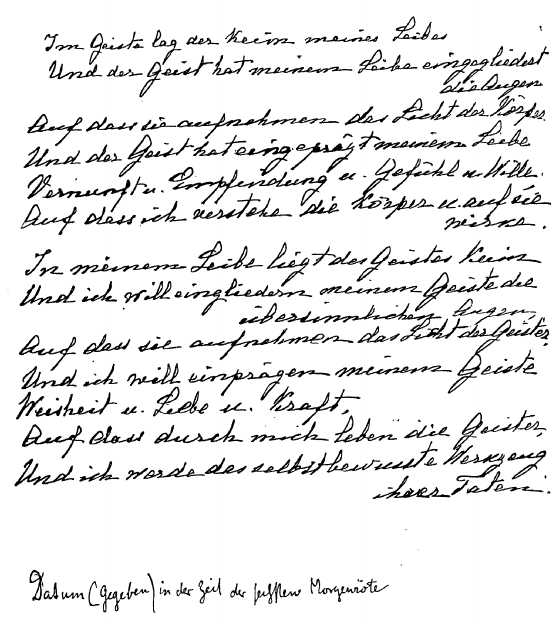 Im Geiste lag der Keim meines Leibes
Und der Geist hat meinem Leibe eingegliedert
die Augen
Auf dass sie aufnehmen das Licht der Körper.
Und der Geist hat eingeprägt meinem Leibe
Vernunft u. Empfindung u. Gefühl u Wille.
Auf dass ich verstehe die Körper u. auf sie
wirke.
In meinem Leibe liegt des Geistes Keim
Und ich will eingliedern meinem Geiste die
übersinnlichen Augen,
Auf dass sie aufnehmen das Licht der Geister,
Und ich will einprägen meinem Geiste
Weisheit u. Liebe u. Kraft,
Auf dass durch mich leben die Geister,
Und ich werde das selbstbewusste Werkzeug
ihrer Taten.
Datum (gegeben) in der Zeit der Morgenröte